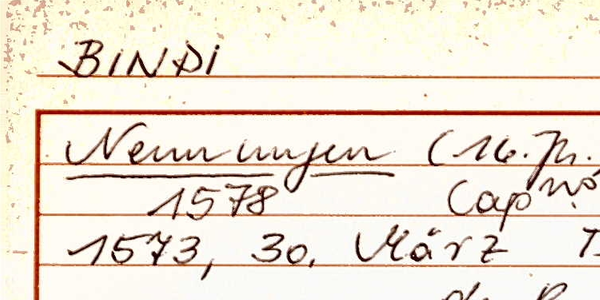 BINDI
Nenningen (16. Jh.
1578 Cap
1573, 30. März